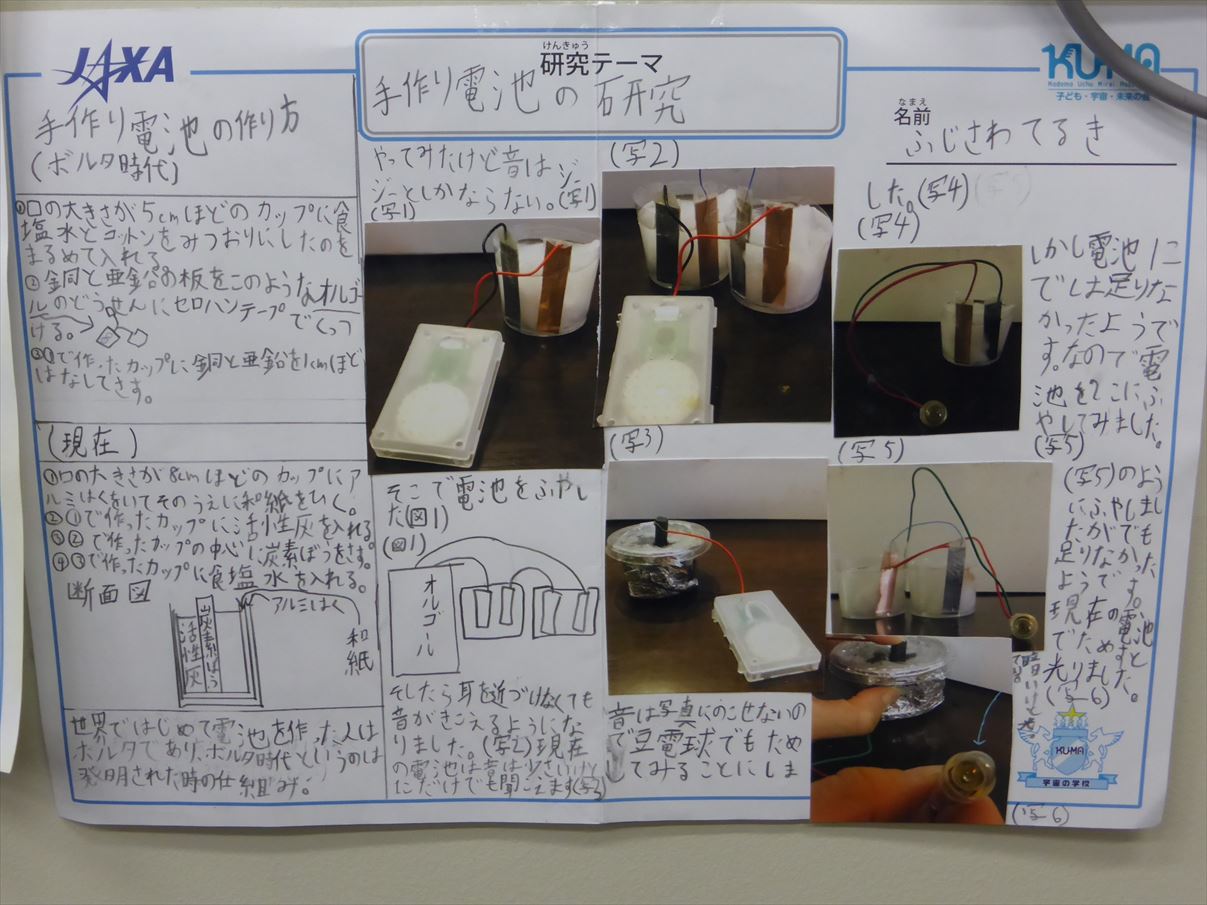 JAXA
けんきゅう
研究テーマ
手作り電池の研究
KUMA
Kodomo Uchu Mirai
子ども・宇宙・未来の会
なまえ
名前
ふじさわてるき
手作り電池の作り方
(ボルタ時代)
①口の大きさが5cmほどのカップに食
塩水とコットンをみつおりにしたのを
まるめて入れる
②銅と亜鉛の板をこのようなオルゴ
ールのどうせんにセロハンテープでくっつ
ける。
③①で作ったカップに銅と亜鉛を1cmほど
はなしてさす。
(現在)
①口の大きさが8cmほどのカップにア
ルミはくをいてそのうえに和紙をひく。
②①で作ったカップに活性灰を入れる
③②で作ったカップの中心に炭素ぼうをさす。
④③で作ったカップに食塩水を入れる。
断面図
アルミはく
炭素ぼう
活性灰
和紙
世界ではじめて電池を作った人は
ボルタであり、ボルタ時代というのは
発明された時の仕組み。
やってみたけど音はジー
ジーとしかならない。(写1)
(写1)
そこで電池をふやし
た(図1)
(図1)
オルゴール
そしたら耳を近づけなくても
音がきこえるようにな
りました。(写2)現在
の電池は音は少さいけど
(写2)
(写3)
音は写真にのこせないの
で豆電球でもため
してみることにしま
した。(写4)
(写4)
しかし電池1こ
では足りな
かったようで
す。なので電
池を2こにふ
やしてみました。
(写5)
(写5)
(写5)のよう
にふやしまし
たがでも
足りなかった
ようです。
現在の電池
でためすと
光りました。
(写6)
KUMA
宇宙の学校
(写6)